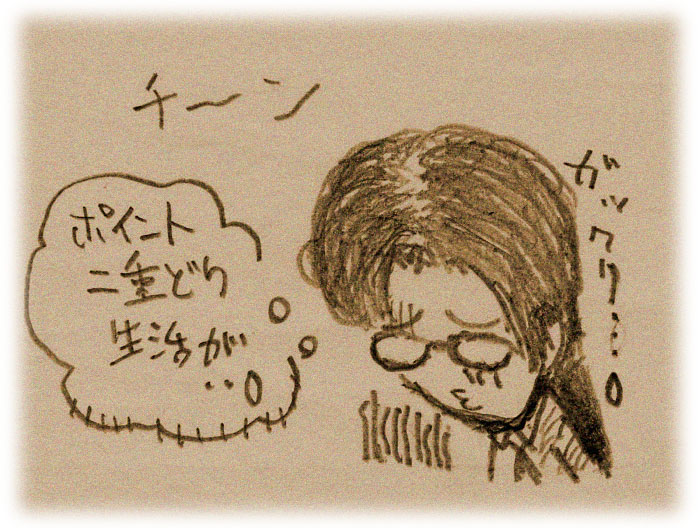 チ〜ン
ガックリ…。
ポイント
二重どり
生活が
‥。